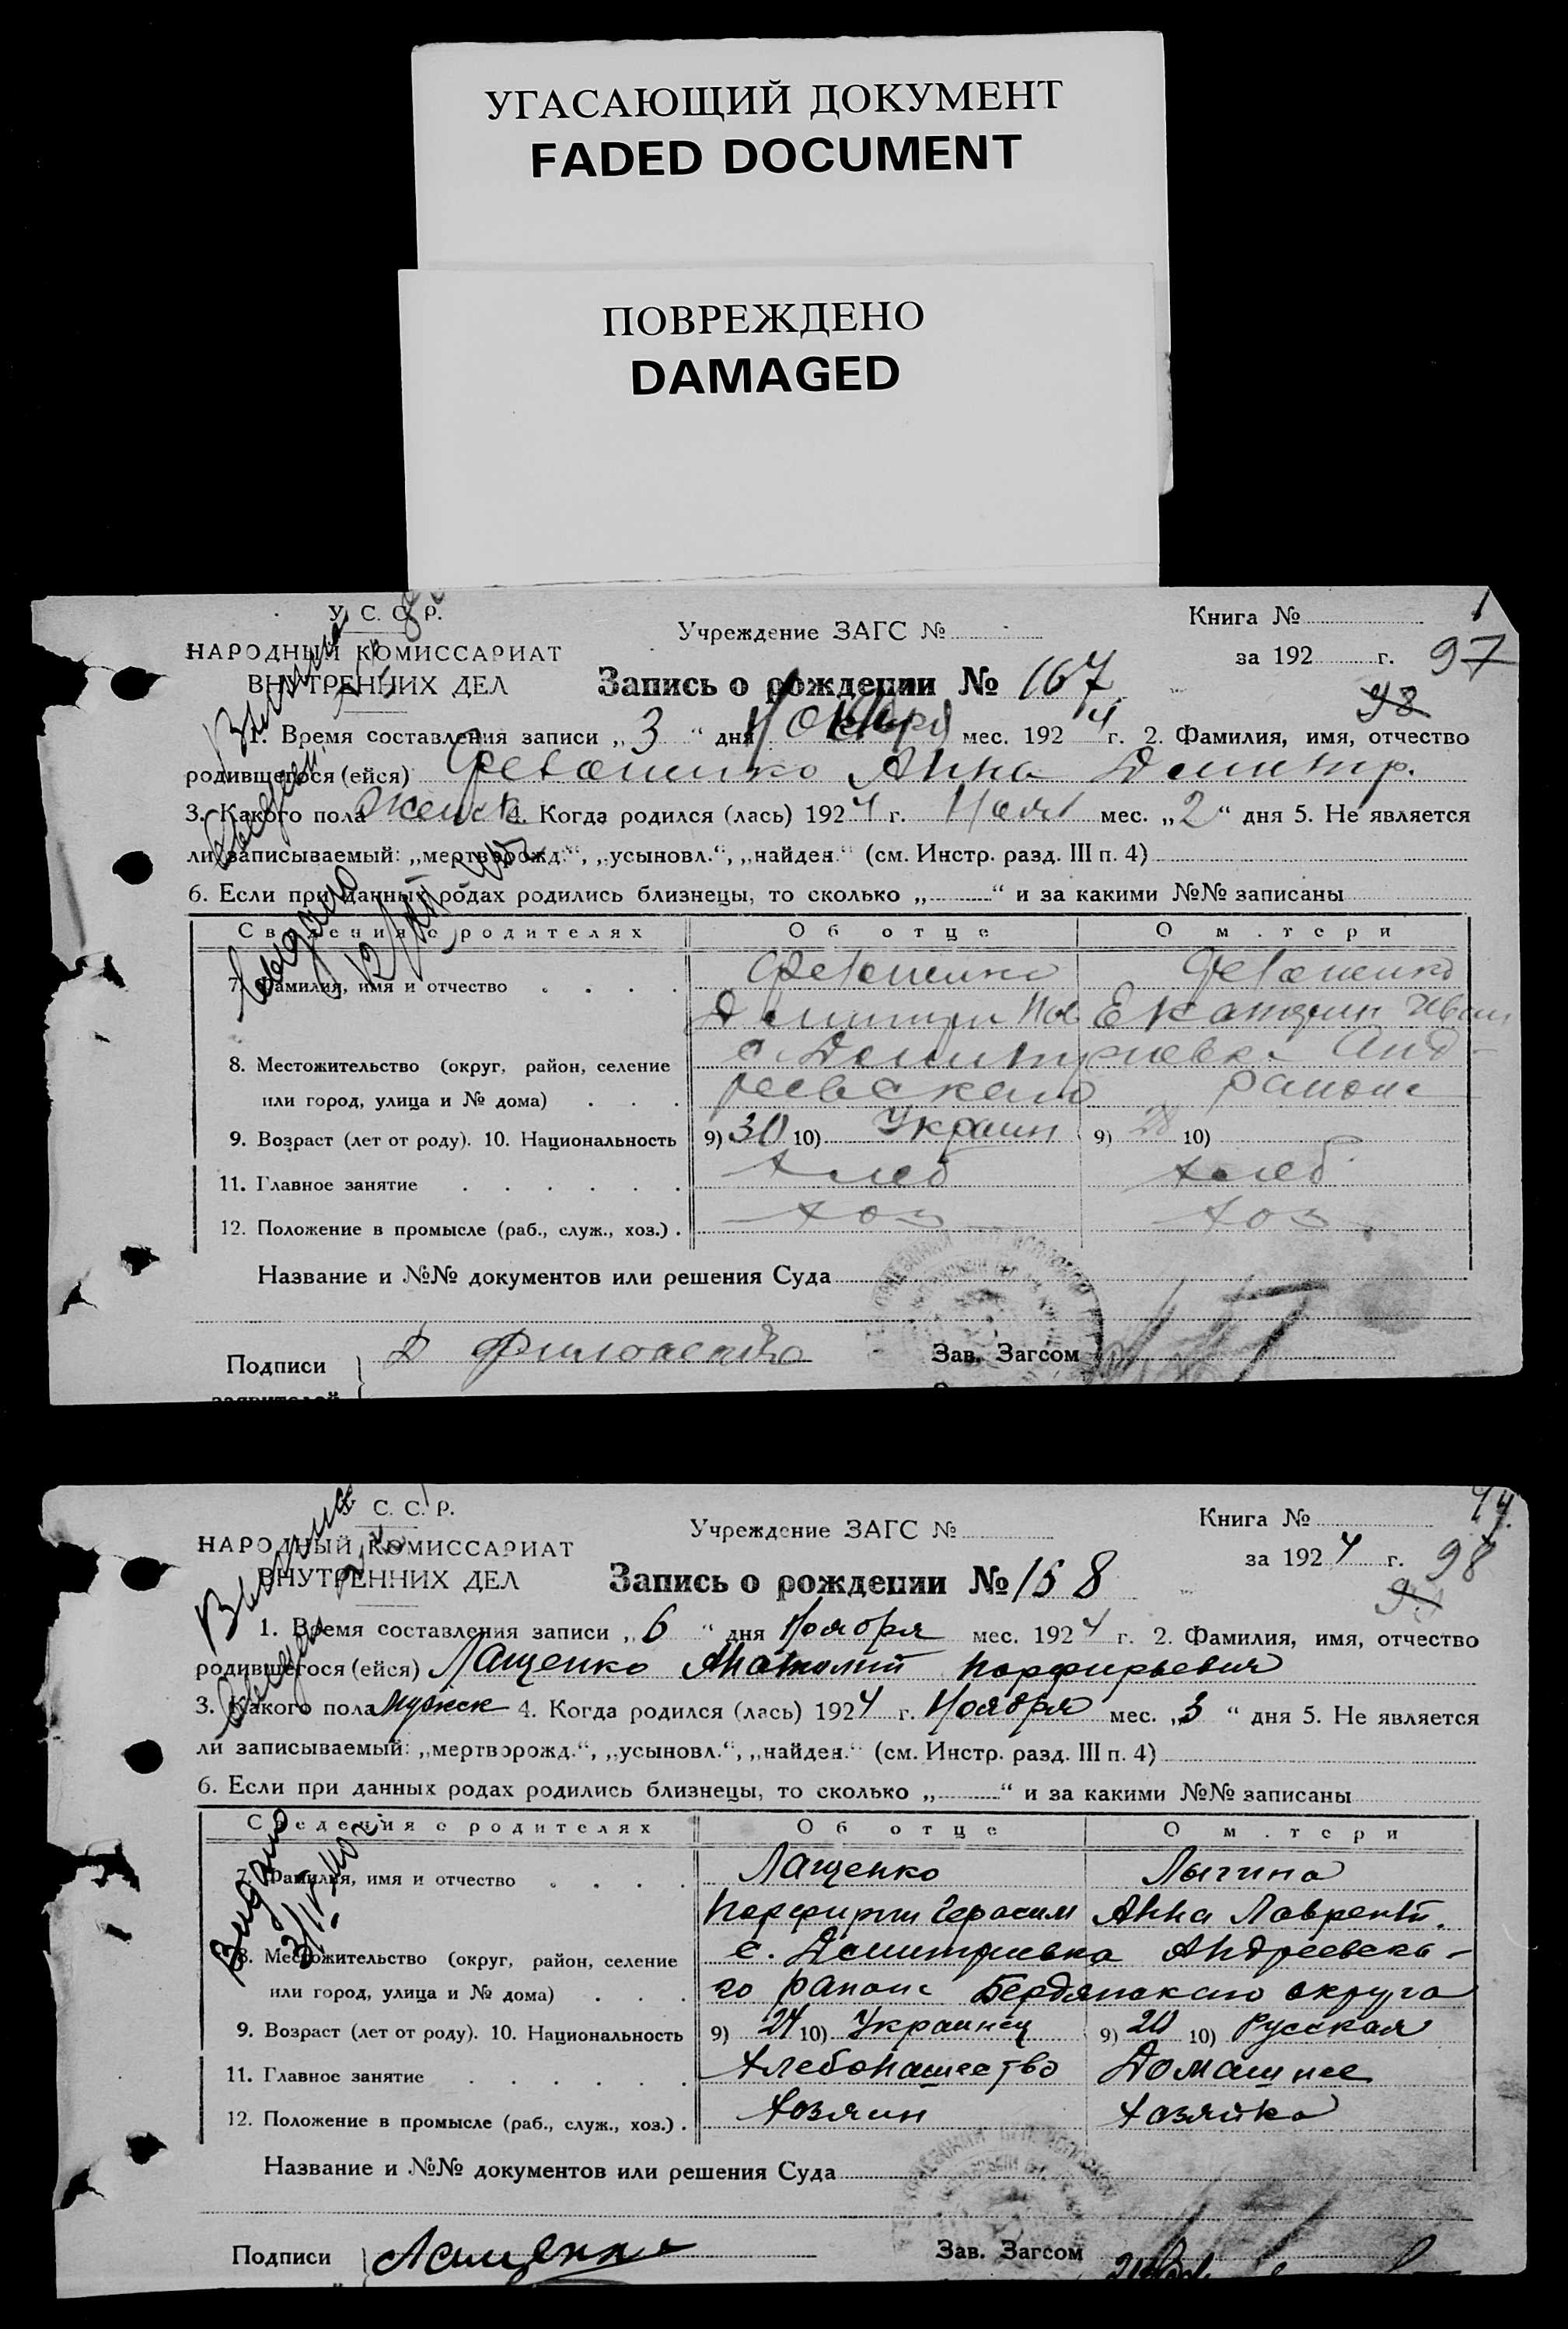 УГАСАЮЩИЙ ДОКУМЕНТ
FADED DOCUMENT
ПОВРЕЖДЕНО
DAMAGED
У. С. С. Р.
НАРОДНЫЙ КОМИССАРИАТ
ВНУТРЕННИХ ДЕЛ
Учреждение ЗАГС №
Книга №
1
за 192 г.
97
98
Запись о рождении № 167
1. Время составления записи „3“ дня Ноября мес. 1924 г. 2. Фамилия, имя, отчество
родившегося (ейся) Анна Дмитр.
3. Какого пола Женск 4. Когда родился (лась) 1924 г. Нояб мес. „2“ дня 5. Не является
ли записываемый: „мертворожд.“, „усыновл.“, „найден.“ (см. Инстр. разд. III п. 4)
6. Если при данных родах родились близнецы, то сколько „ “ и за какими №№ записаны
Сведения о родителях Об отце О матери
7. Фамилия, имя и отчество
Дмитри Екатерин Иван
8. Местожительство (округ, район, селение с. Дмитриевка Анд-
или город, улица и № дома) реевского района
9. Возраст (лет от роду). 10. Национальность 9) 30 10) Украин 9) 28 10)
11. Главное занятие хлеб хлеб
12. Положение в промысле (раб., служ., хоз.) хоз хоз
Название и №№ документов или решения Суда
Подписи
Зав. Загсом
С. С. Р.
НАРОДНЫЙ КОМИССАРИАТ
ВНУТРЕННИХ ДЕЛ
Учреждение ЗАГС №
Книга №
за 1924 г.
98
Запись о рождении № 158
1. Время составления записи „6“ дня Ноября мес. 1924 г. 2. Фамилия, имя, отчество
родившегося (ейся) Лащенко Анатолий Порфирьевич
3. Какого пола Мужск 4. Когда родился (лась) 1924 г. Ноября мес. „3“ дня 5. Не является
ли записываемый: „мертворожд.“, „усыновл.“, „найден.“ (см. Инстр. разд. III п. 4)
6. Если при данных родах родились близнецы, то сколько „ “ и за какими №№ записаны
Сведения о родителях Об отце О матери
7. Фамилия, имя и отчество Лащенко Лыгина
Порфирий Герасим Анна Лаврент.
8. Местожительство (округ, район, селение с. Дмитриевка Андреевско-
или город, улица и № дома) го района Бердянского округа
9. Возраст (лет от роду). 10. Национальность 9) 24 10) Украинец 9) 20 10) Русская
11. Главное занятие Хлебопашество Домашнее
12. Положение в промысле (раб., служ., хоз.) Хозяин Хозяйка
Название и №№ документов или решения Суда
Подписи Лащенко
Зав. Загсом